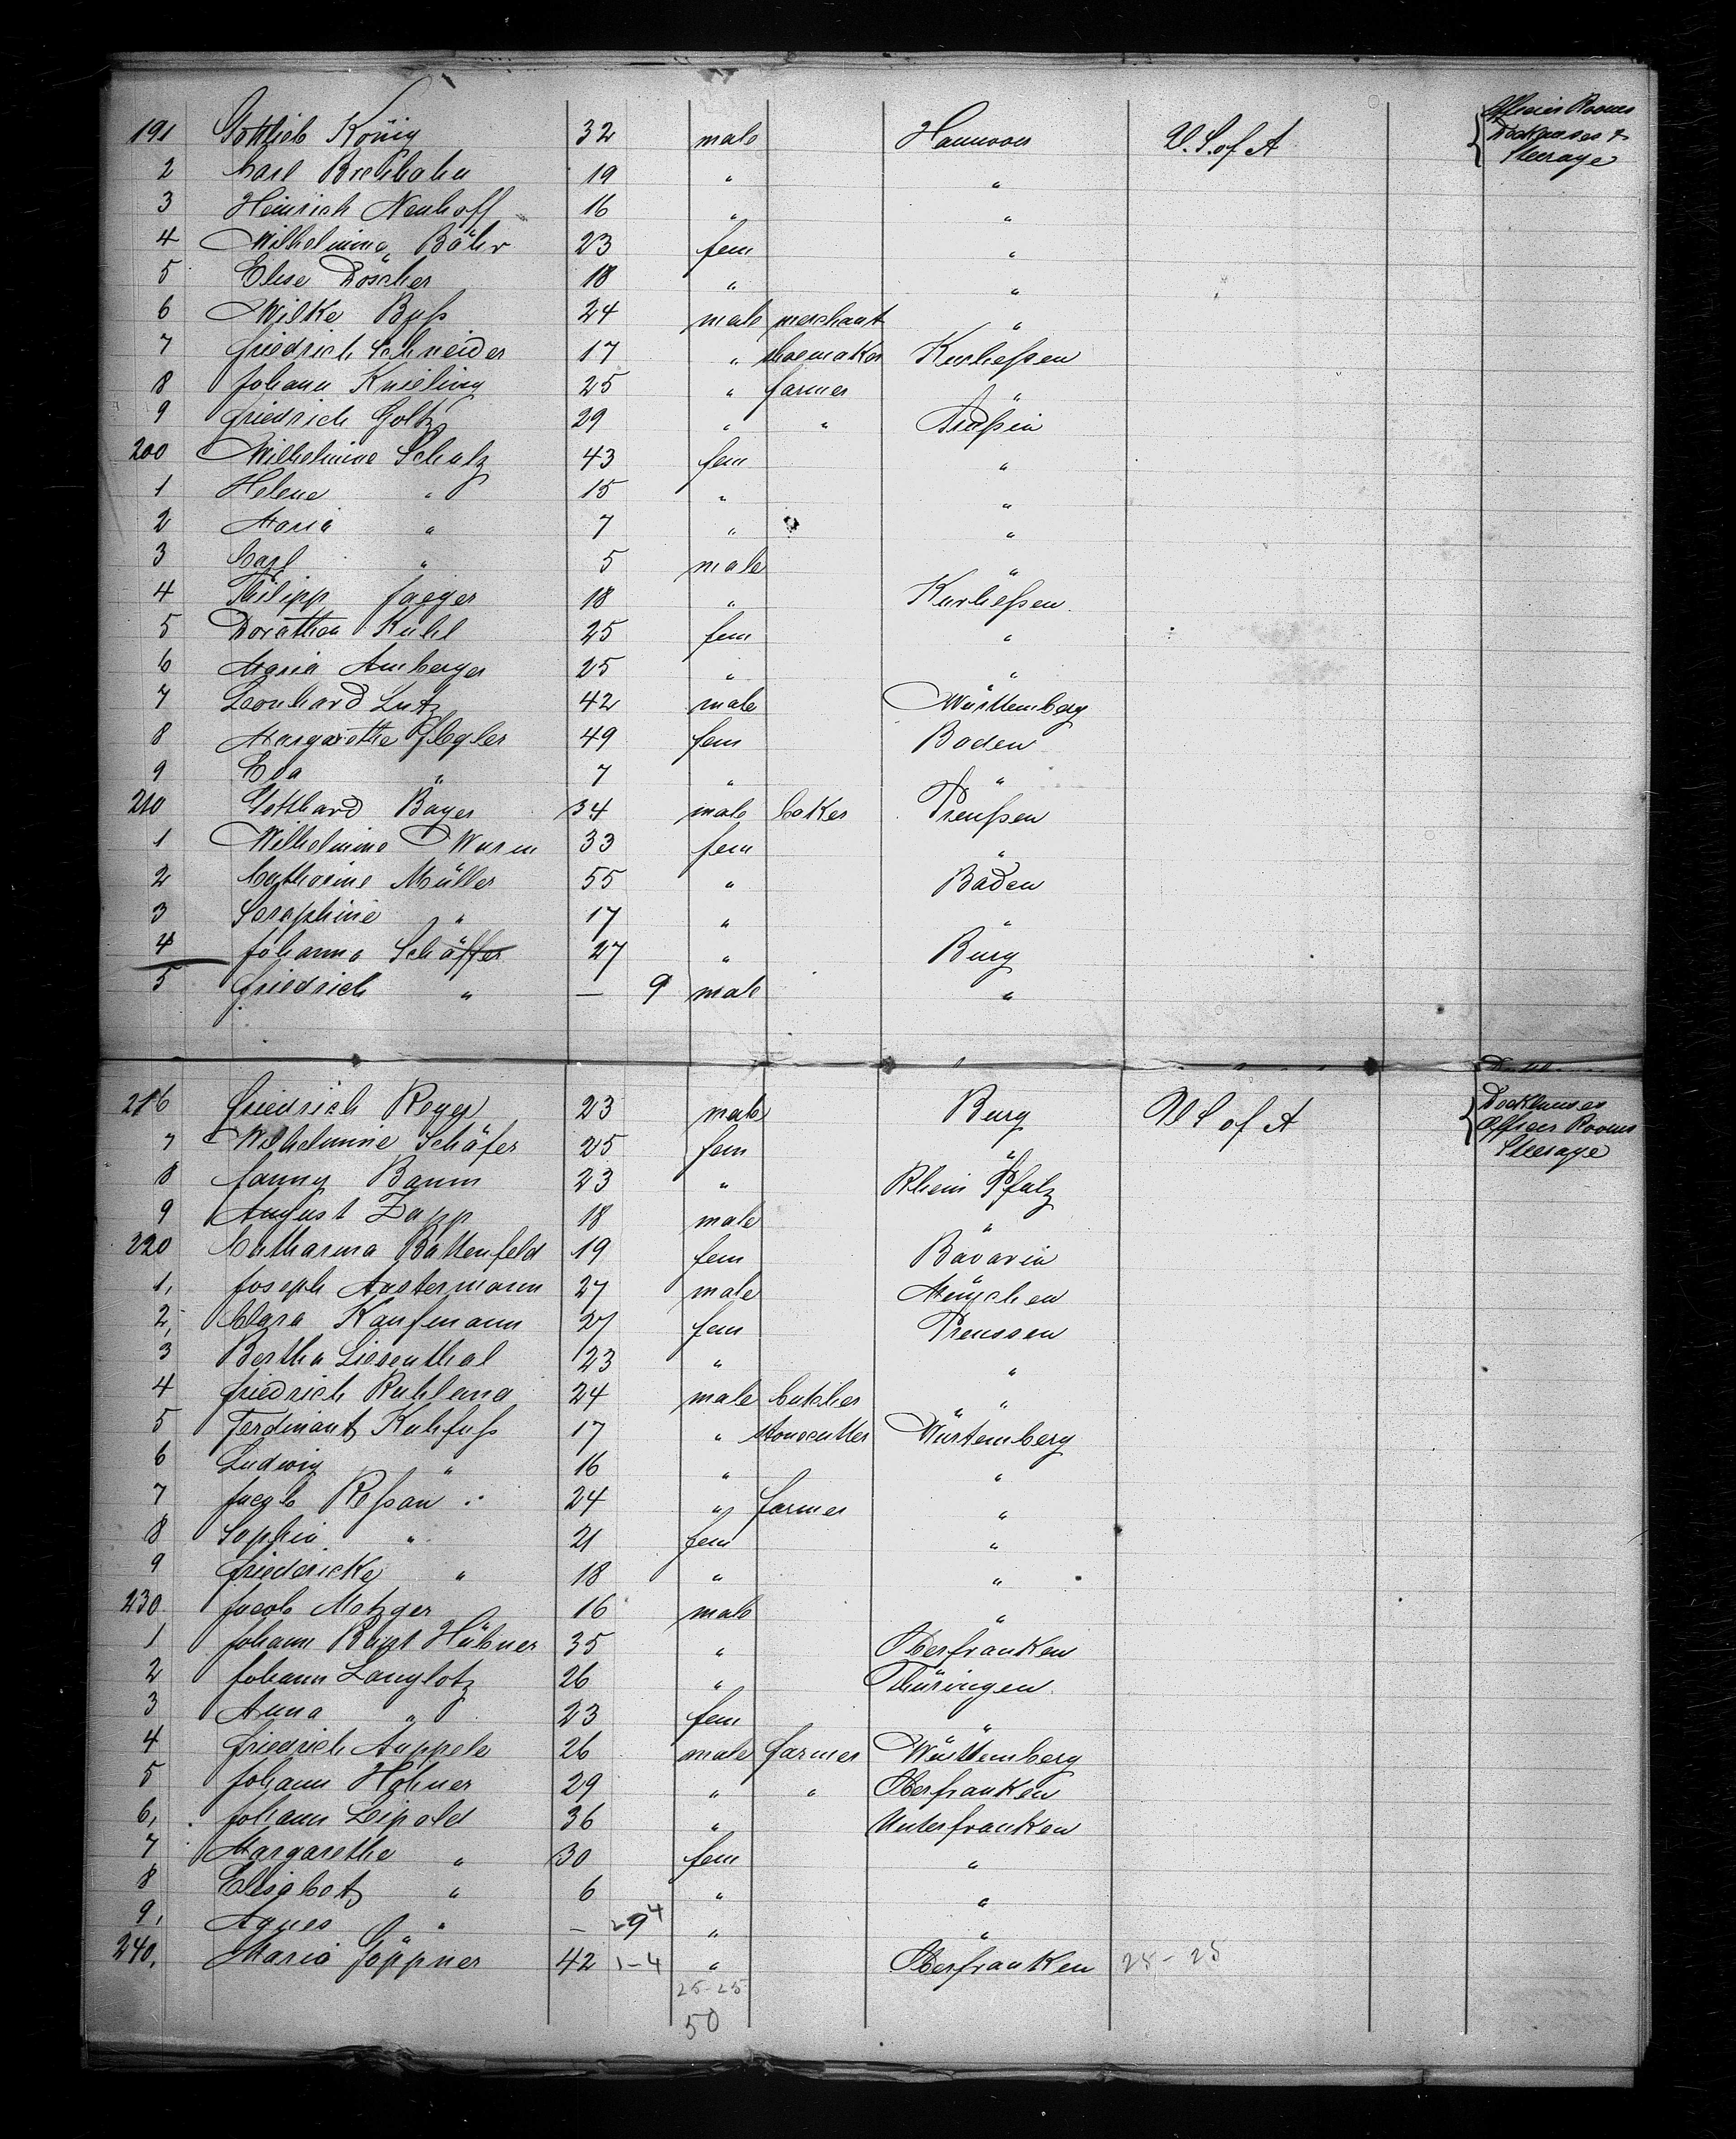 Officier Rooms
191 Gottlieb König 32 male Hannover U. S. of A Deckhouses &
Steerage
2 Carl 19 " "
3 Heinrich Neuhoff 16 " "
4 Wilhelmine Bähr 23 fem "
5 Elise Döscher 18 " "
6 Wilke Buß 24 male merchant "
7 Friedrich Schneider 17 " shoemaker Kurheßen
8 Johann Knieling 25 " farmer "
9 Friedrich Goltz 29 " "
200 Wilhelmine Schulz 43 fem "
1 Helene " 15 " "
2 Maria " 7 " "
3 Carl " 5 male "
4 Philipp Jaeger 18 " Kurheßen
5 Dorathea Kuhl 25 fem "
6 Maria Amberger 25 " "
7 Leonhard Lutz 42 male Württemberg
8 Margarethe Flegler 49 fem Baden
9 Eva " 7 " "
210 Gotthard Bayer 34 male baker Preußen
1 Wilhelmine Wurm 33 fem "
2 Catharine Müller 55 " Baden
3 Seraphine " 17 " "
4 Johanna Schäffer 27 " Burg
5 Friedrich " — 9 male "
216 Friedrich Reyer 23 male Burg U S of A Deckhouses
Officier Rooms
7 Wilhelmine Schäfer 25 fem " Steerage
8 Fanny Baum 23 " Rhein Pfalz
9 August Zapp 18 male "
220 Catharina Battenfeld 19 fem Bavaria
1, Joseph Austermann 27 male München
2, Clara Kaufmann 27 fem Preussen
3 Bertha Liesenthal 23 " "
4 Friedrich Ruhland 24 male butcher " "
5 Ferdinant Kuhfuß 17 " stonecutter Würtemberg
6 Ludwig " 16 " "
7 Jacob Reßau 24 " farmer "
8 Sophia " 21 fem "
9 Friedericke " 18 " "
230 Jacob Metzger 16 male "
1 Johann Bapt Hübner 35 " Oberfranken
2 Johann Langlotz 26 " Thüringen
3 Anna " 23 fem "
4 Friedrich Auppele 26 male farmer Württemberg
5 Johann Höhner 29 " " Oberfranken
6, Johann Leipold 36 " Unterfranken
7 Margarethe " 30 fem "
8 Elisabet " 6 " "
9, Agnes " — 9 4 " "
240, Maria Göppner 42 1-4 " Oberfranken 25-25
25-25
50